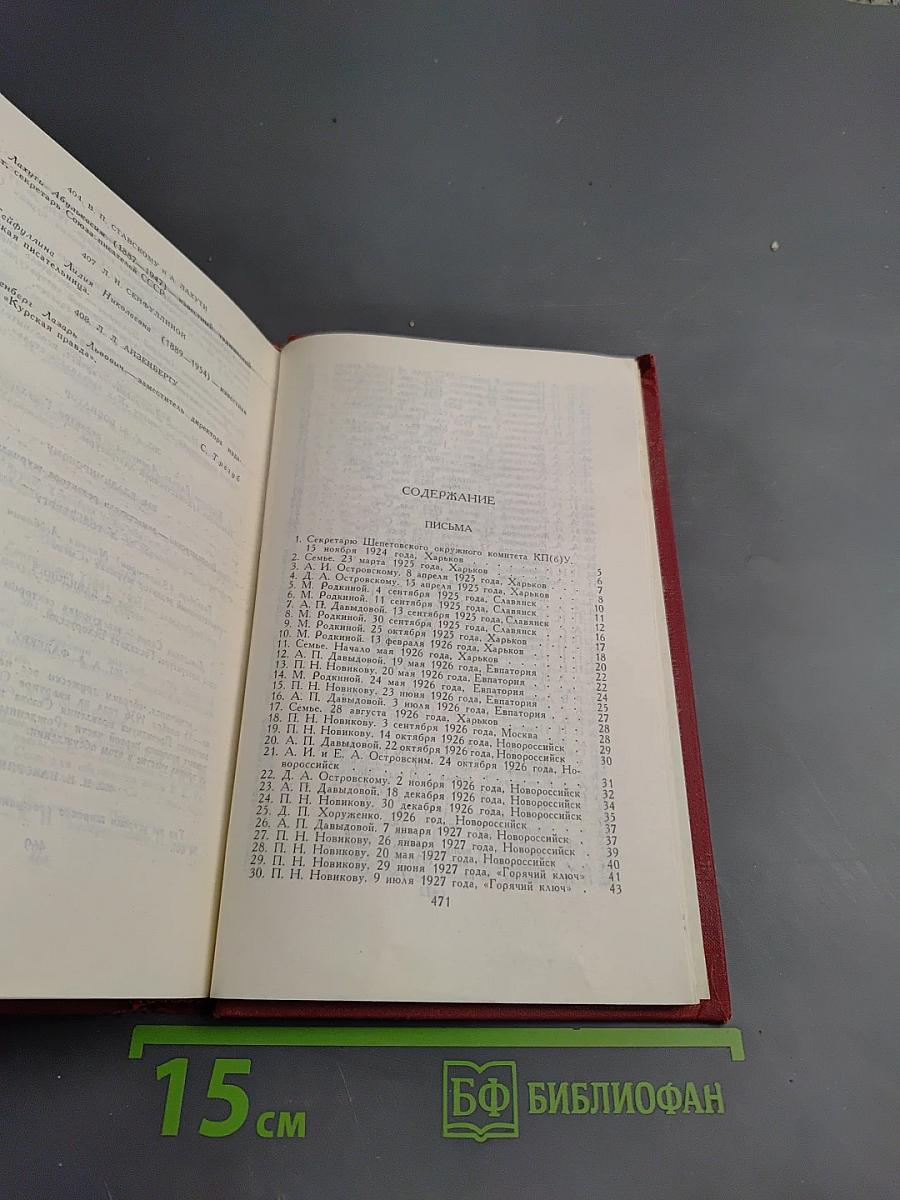 404. В. П. СТАВСКОМУ и А. ЛАХУТИ
Лахути Абулькасим (1887—1947)—известный таджикский
секретарь Союза писателей СССР.
407 Л. Н. СЕЙФУЛЛИНОЙ
Сейфуллина Лидия Николаевна (1889—1954)—известная
писательница.
408. Л. Л. АЙЗЕНБЕРГУ
Лазарь Львович—заместитель директора
«Курская правда».
С. Трегуб
СОДЕРЖАНИЕ
ПИСЬМА
1. Секретарю Шепетовского окружного комитета КП(б)У.
15 ноября 1924 года, Харьков . . . . . 5
2. Семье. 23 марта 1925 года, Харьков . . . . 6
3. А. И. Островскому. 8 апреля 1925 года, Харьков . . 7
4. Д. А. Островскому. 15 апреля 1925 года, Харьков . . 8
5. М. Родкиной. 4 сентября 1925 года, Славянск . . 10
6. М. Родкиной. 11 сентября 1925 года, Славянск . . 11
7. А. П. Давыдовой. 13 сентября 1925 года, Славянск . 12
8. М. Родкиной. 30 сентября 1925 года, Славянск . . 16
9. М. Родкиной. 25 октября 1925 года, Харьков . . 17
10. М. Родкиной. 13 февраля 1926 года, Харьков . . 18
11. Семье. Начало мая 1926 года, Харьков . . . 20
12. А. П. Давыдовой. 19 мая 1926 года, Евпатория . . 22
13. П. Н. Новикову. 20 мая 1926 года, Евпатория . . 22
14. М. Родкиной. 24 мая 1926 года, Евпатория . . . 24
15. П. Н. Новикову. 23 июня 1926 года, Евпатория . . 25
16. А. П. Давыдовой. 3 июля 1926 года, Евпатория . . 27
17. Семье. 28 августа 1926 года, Харьков . . . . 28
18. П. Н. Новикову. 3 сентября 1926 года, Москва . . 28
19. П. Н. Новикову. 14 октября 1926 года, Новороссийск . 29
20. А. П. Давыдовой. 22 октября 1926 года, Новороссийск . 30
21. А. И. и Е. А. Островским. 24 октября 1926 года, Но-
вороссийск . . . . . . . . . . 31
22. Д. А. Островскому. 2 ноября 1926 года, Новороссийск 32
23. А. П. Давыдовой. 18 декабря 1926 года, Новороссийск 34
24. П. Н. Новикову. 30 декабря 1926 года, Новороссийск 35
25. Д. П. Хоруженко. 1926 год, Новороссийск . . . . 37
26. А. П. Давыдовой. 7 января 1927 года, Новороссийск . 37
27. П. Н. Новикову. 26 января 1927 года, Новороссийск . 39
28. П. Н. Новикову. 20 мая 1927 года, Новороссийск . 40
29. П. Н. Новикову. 29 июня 1927 года, «Горячий ключ» 41
30. П. Н. Новикову. 9 июля 1927 года, «Горячий ключ» . 43
471
15 см
БФ БИБЛИОФАН